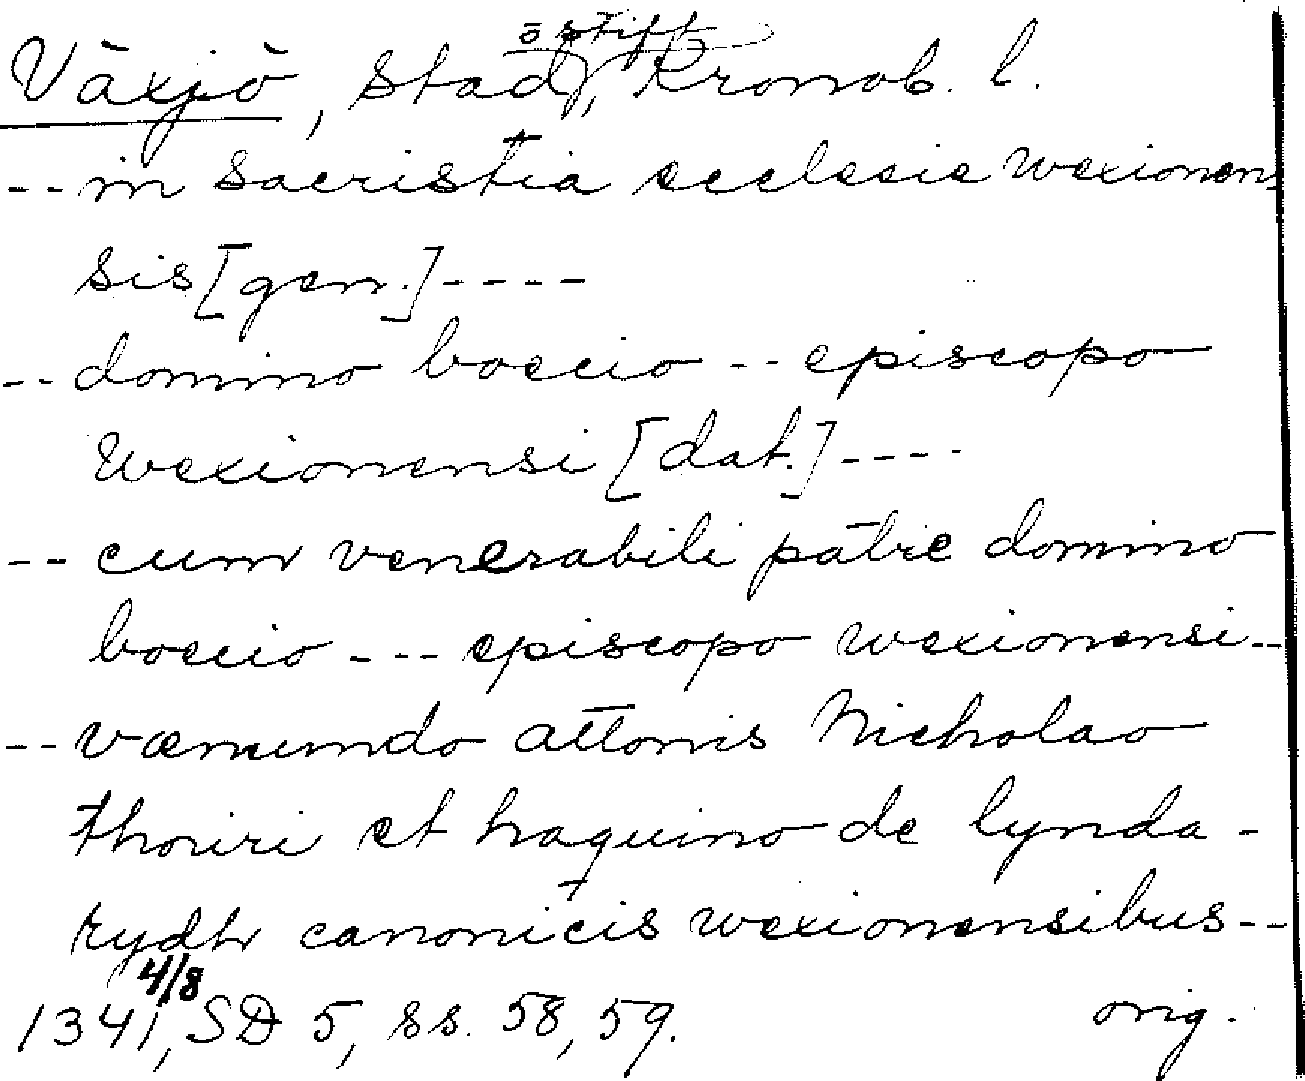 ö stift
Växjö, stad, Kronob. l.
-- in sacristia ecclesie wexionen
sis [gen.] ----
-- domino boecio -- episcopo
wexionensi [dat.] ----
-- cum venerabili patre domino
boecio --- episcopo wexionensi --
-- væmundo attonis Nicholao
thoriri et haquino de lynda-
rydh canonicis wexionensibus --
1341 4/8, SD 5, ss. 58, 59. orig.